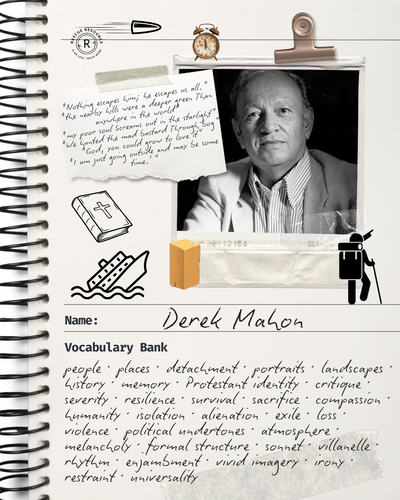 RESCUE RESOURCE
R
"Nothing escapes him; he escapes us all."
"the nearby hills were a deeper green Than
anywhere in the world"
"my poor soul Screams out in the starlight"
"We hunted the mad bastard Through bog"
"God, you could grow to love it"
"I am just going outside and may be some
time."
Name: Derek Mahon
Vocabulary Bank
people · places · detachment · portraits · landscapes ·
history · memory · Protestant identity · critique ·
severity · resilience · survival · sacrifice · compassion ·
humanity · isolation · alienation · exile · loss ·
violence · political undertones · atmosphere ·
melancholy · formal structure · sonnet · villanelle ·
rhythm · enjambment · vivid imagery · irony ·
restraint · universality